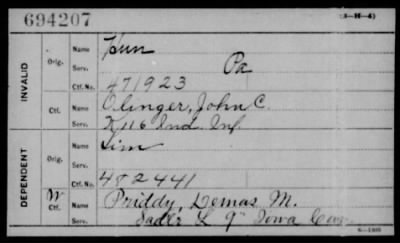 694207 (3-M-4)
INVALID
Orig.
Name
Serv. Pa
Ctf. No. 471923
Ctf.
Name Olinger, John C.
Serv. K 116 Ind. Inf.
DEPENDENT
Orig.
Name
Serv.
Ctf. No. 482441
W
Ctf.
Name Priddy, Demas M.
Serv. Sadlr L 9" Iowa Cav.